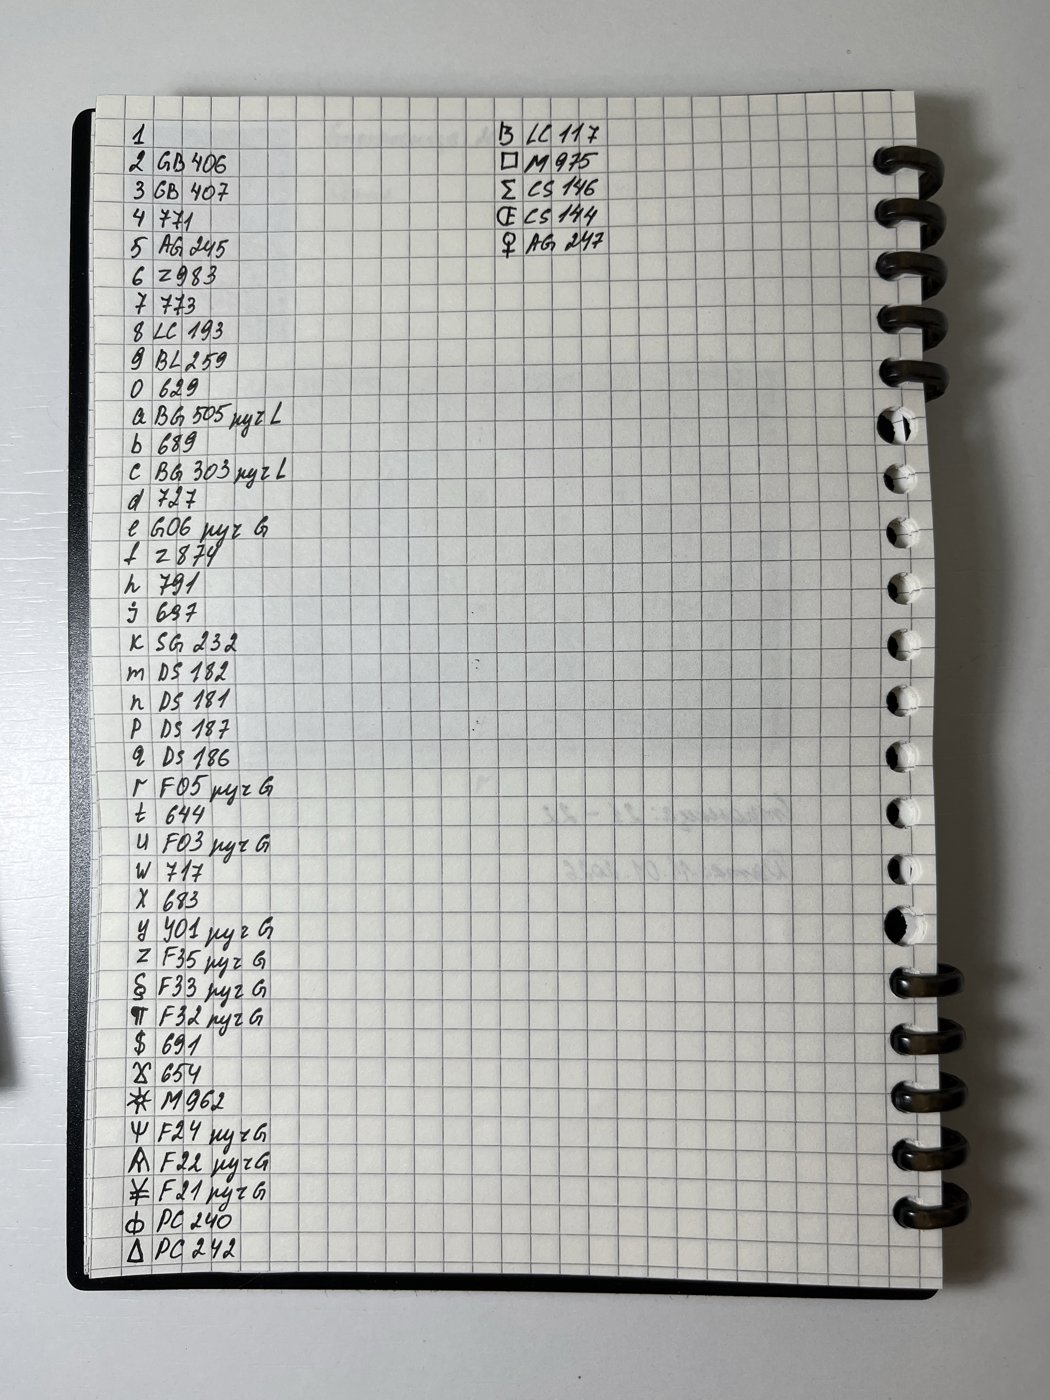 1
2 GB 406
3 GB 407
4 771
5 AG 245
6 Z 983
7 773
8 LC 193
9 BL 259
0 629
a BG 505 руч L
b 689
c BG 303 руч L
d 727
e G06 руч G
f Z 874
h 791
j 697
k SG 232
m DS 182
n DS 181
p DS 187
q DS 186
r F05 руч G
t 644
u F03 руч G
w 717
x 683
y Y01 руч G
z F35 руч G
§ F33 руч G
¶ F32 руч G
$ 691
654
M 962
Ψ F24 руч G
F22 руч G
¥ F21 руч G
ф PC 240
Δ PC 242
B LC 117
□ M 975
Σ CS 146
CS 144
♀ AG 247